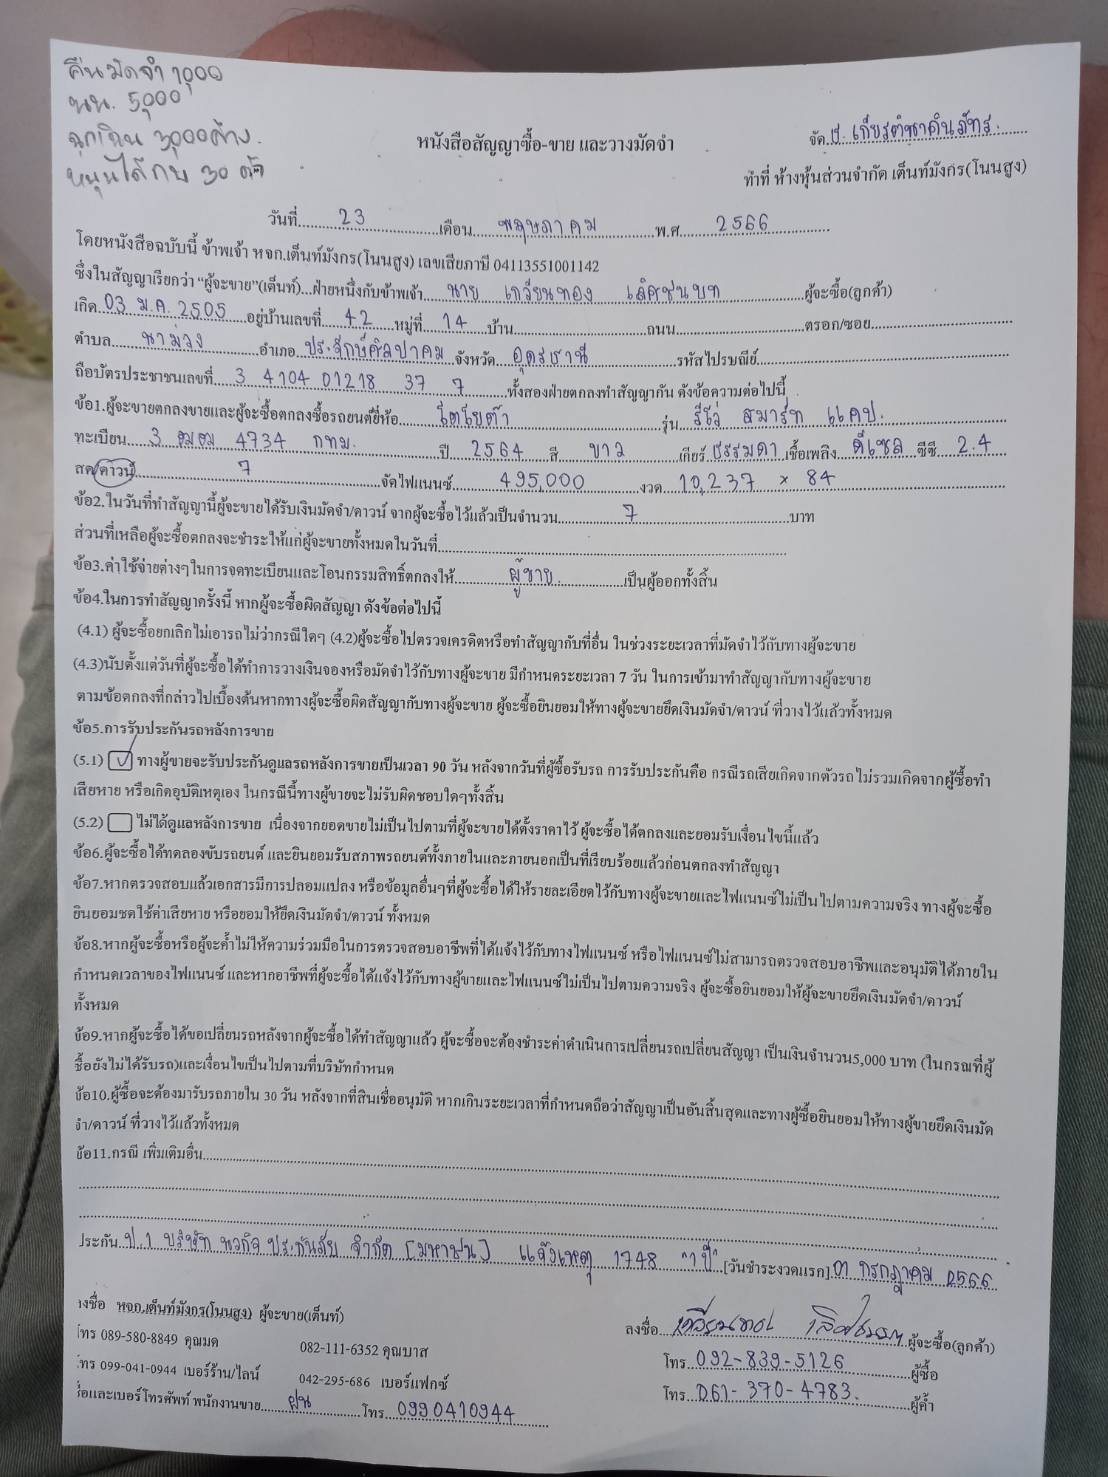 คืนมัดจำ 1000
นน. 5,000
ฉุกเฉิน 3,000ค้าง.
หมุนได้กบ 30 ตัว
หนังสือสัญญาซื้อ-ขาย และวางมัดจำ
จัด ธ. เกียรตินาคินภัทร.
ทำที่ ห้างหุ้นส่วนจำกัด เต็นท์มังกร(โนนสูง)
วันที่ 23 เดือน พฤษภาคม พ.ศ. 2566
โดยหนังสือฉบับนี้ ข้าพเจ้า หจก.เต็นท์มังกร(โนนสูง) เลขเสียภาษี 04113551001142
ซึ่งในสัญญาเรียกว่า “ผู้จะขาย”(เต็นท์)...ฝ่ายหนึ่งกับข้าพเจ้า นาย เกวียนทอง เลิศชนบท ผู้จะซื้อ(ลูกค้า)
เกิด 03 ม.ค. 2505 อยู่บ้านเลขที่ 42 หมู่ที่ 14 บ้าน ถนน ตรอก/ซอย
ตำบล นาม่วง อำเภอ ประจักษ์ศิลปาคม จังหวัด อุดรธานี รหัสไปรษณีย์
ถือบัตรประชาชนเลขที่ 3 4104 01218 37 7 ทั้งสองฝ่ายตกลงทำสัญญากัน ดังข้อความต่อไปนี้
ข้อ1.ผู้จะขายตกลงขายและผู้จะซื้อตกลงซื้อรถยนต์ยี่ห้อ โตโยต้า รุ่น รีโว่ สมาร์ท แคป.
ทะเบียน 3 ฒฒ 4734 กทม. ปี 2564 สี ขาว เกียร์ ธรรมดา เชื้อเพลิง ดีเซล ซีซี 2.4
สด/ดาวน์ 7 จัดไฟแนนซ์ 495,000 งวด 10,237 × 84
ข้อ2.ในวันที่ทำสัญญานี้ผู้จะขายได้รับเงินมัดจำ/ดาวน์ จากผู้จะซื้อไว้แล้วเป็นจำนวน 7 บาท
ส่วนที่เหลือผู้จะซื้อตกลงจะชำระให้แก่ผู้จะขายทั้งหมดในวันที่
ข้อ3.ค่าใช้จ่ายต่างๆในการจดทะเบียนและโอนกรรมสิทธิ์ตกลงให้ ผู้ขาย เป็นผู้ออกทั้งสิ้น
ข้อ4.ในการทำสัญญาครั้งนี้ หากผู้จะซื้อผิดสัญญา ดังข้อต่อไปนี้
(4.1) ผู้จะซื้อยกเลิกไม่เอารถไม่ว่ากรณีใดๆ (4.2)ผู้จะซื้อไปตรวจเครดิตหรือทำสัญญากับที่อื่น ในช่วงระยะเวลาที่มัดจำไว้กับทางผู้จะขาย
(4.3)นับตั้งแต่วันที่ผู้จะซื้อได้ทำการวางเงินจองหรือมัดจำไว้กับทางผู้จะขาย มีกำหนดระยะเวลา 7 วัน ในการเข้ามาทำสัญญากับทางผู้จะขาย
ตามข้อตกลงที่กล่าวไปเบื้องต้นหากทางผู้จะซื้อผิดสัญญากับทางผู้จะขาย ผู้จะซื้อยินยอมให้ทางผู้จะขายยึดเงินมัดจำ/ดาวน์ ที่วางไว้แล้วทั้งหมด
ข้อ5.การรับประกันรถหลังการขาย
(5.1) ✓ ทางผู้ขายจะรับประกันดูแลรถหลังการขายเป็นเวลา 90 วัน หลังจากวันที่ผู้ซื้อรับรถ การรับประกันคือ กรณีรถเสียเกิดจากตัวรถ ไม่รวมเกิดจากผู้ซื้อทำ
เสียหาย หรือเกิดอุบัติเหตุเอง ในกรณีนี้ทางผู้ขายจะไม่รับผิดชอบใดๆทั้งสิ้น
(5.2) ไม่ได้ดูแลหลังการขาย เนื่องจากยอดขายไม่เป็นไปตามที่ผู้จะขายได้ตั้งราคาไว้ ผู้จะซื้อได้ตกลงและยอมรับเงื่อนไขนี้แล้ว
ข้อ6.ผู้จะซื้อได้ทดลองขับรถยนต์ และยินยอมรับสภาพรถยนต์ทั้งภายในและภายนอกเป็นที่เรียบร้อยแล้วก่อนตกลงทำสัญญา
ข้อ7.หากตรวจสอบแล้วเอกสารมีการปลอมแปลง หรือข้อมูลอื่นๆที่ผู้จะซื้อได้ให้รายละเอียดไว้กับทางผู้จะขายและไฟแนนซ์ไม่เป็นไปตามความจริง ทางผู้จะซื้อ
ยินยอมชดใช้ค่าเสียหาย หรือยอมให้ยึดเงินมัดจำ/ดาวน์ ทั้งหมด
ข้อ8.หากผู้จะซื้อหรือผู้จะค้ำไม่ให้ความร่วมมือในการตรวจสอบอาชีพที่ได้แจ้งไว้กับทางไฟแนนซ์ หรือไฟแนนซ์ไม่สามารถตรวจสอบอาชีพและอนุมัติได้ภายใน
กำหนดเวลาของไฟแนนซ์ และหากอาชีพที่ผู้จะซื้อได้แจ้งไว้กับทางผู้ขายและไฟแนนซ์ไม่เป็นไปตามความจริง ผู้จะซื้อยินยอมให้ผู้จะขายยึดเงินมัดจำ/ดาวน์
ทั้งหมด
ข้อ9.หากผู้จะซื้อได้ขอเปลี่ยนรถหลังจากผู้จะซื้อได้ทำสัญญาแล้ว ผู้จะซื้อจะต้องชำระค่าดำเนินการเปลี่ยนรถเปลี่ยนสัญญา เป็นเงินจำนวน5,000 บาท (ในกรณีที่ผู้
ซื้อยังไม่ได้รับรถ)และเงื่อนไขเป็นไปตามที่บริษัทกำหนด
ข้อ10.ผู้ซื้อจะต้องมารับรถภายใน 30 วัน หลังจากที่สินเชื่ออนุมัติ หากเกินระยะเวลาที่กำหนดถือว่าสัญญาเป็นอันสิ้นสุดและทางผู้ซื้อยินยอมให้ทางผู้ขายยึดเงินมัด
จำ/ดาวน์ ที่วางไว้แล้วทั้งหมด
ข้อ11.กรณี เพิ่มเติมอื่น
ประกัน ป.1 บริษัท นวกิจ ประกันภัย จำกัด [มหาชน] แจ้งเหตุ 1748 "1 ปี" [วันชำระงวดแรก] 01 กรกฎาคม 2566
ลงชื่อ หจก.เต็นท์มังกร(โนนสูง) ผู้จะขาย(เต็นท์)
ลงชื่อ เกวียนทอง เลิศชนบท ผู้จะซื้อ(ลูกค้า)
โทร 089-580-8849 คุณมด 082-111-6352 คุณบาส
โทร 092-839-5126 ผู้ซื้อ
โทร 099-041-0944 เบอร์ร้าน/ไลน์ 042-295-686 เบอร์แฟกซ์
โทร 061-370-4783. ผู้ค้ำ
ชื่อและเบอร์โทรศัพท์ พนักงานขาย ฝน โทร 0990410944